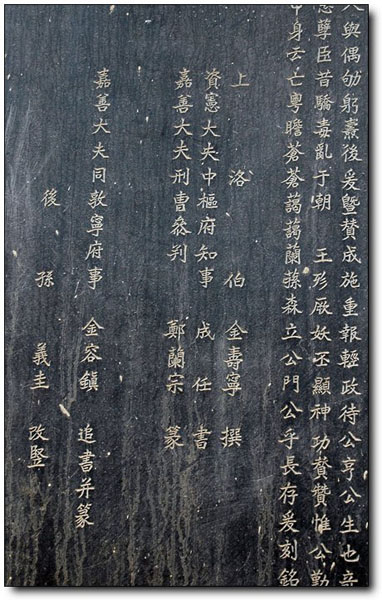 與偶劬躬燾後爰曁賛成施重報輕政待公亨公生也
孽臣昔驕毒亂于朝 王殄厥妖丕顯神功賛贊惟公勤
身云亡粤瞻蒼蒼藹藹蘭蓀森立公門公乎長存爰刻銘
上洛伯 金壽寧 撰
資憲大夫中樞府知事 成任 書
嘉善大夫刑曹叅判 鄭蘭宗 篆
嘉善大夫同敦寧府事 金容鎭 追書并篆
後孫 義圭 改竪